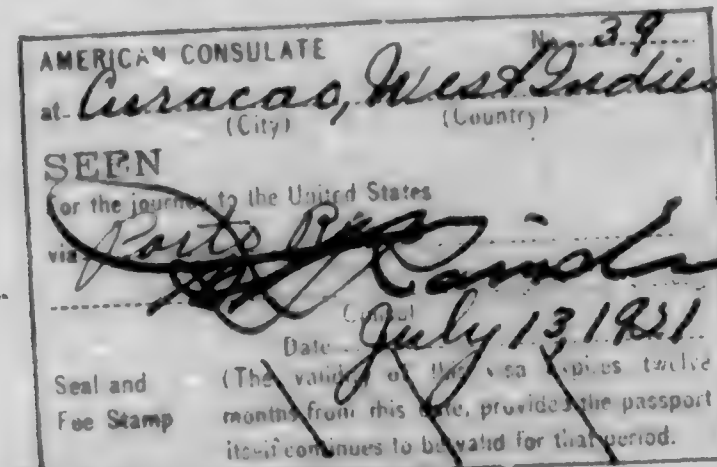 AMERICAN CONSULATE No. 39
at Curacao, West Indies
(City) (Country)
SEEN
For the journey to the United States
via Porto Rico
Consul
Date July 13 1921
Seal and Fee Stamp
(The validity of this visa expires twelve
months from this date, provided the passport
itself continues to be valid for that period.